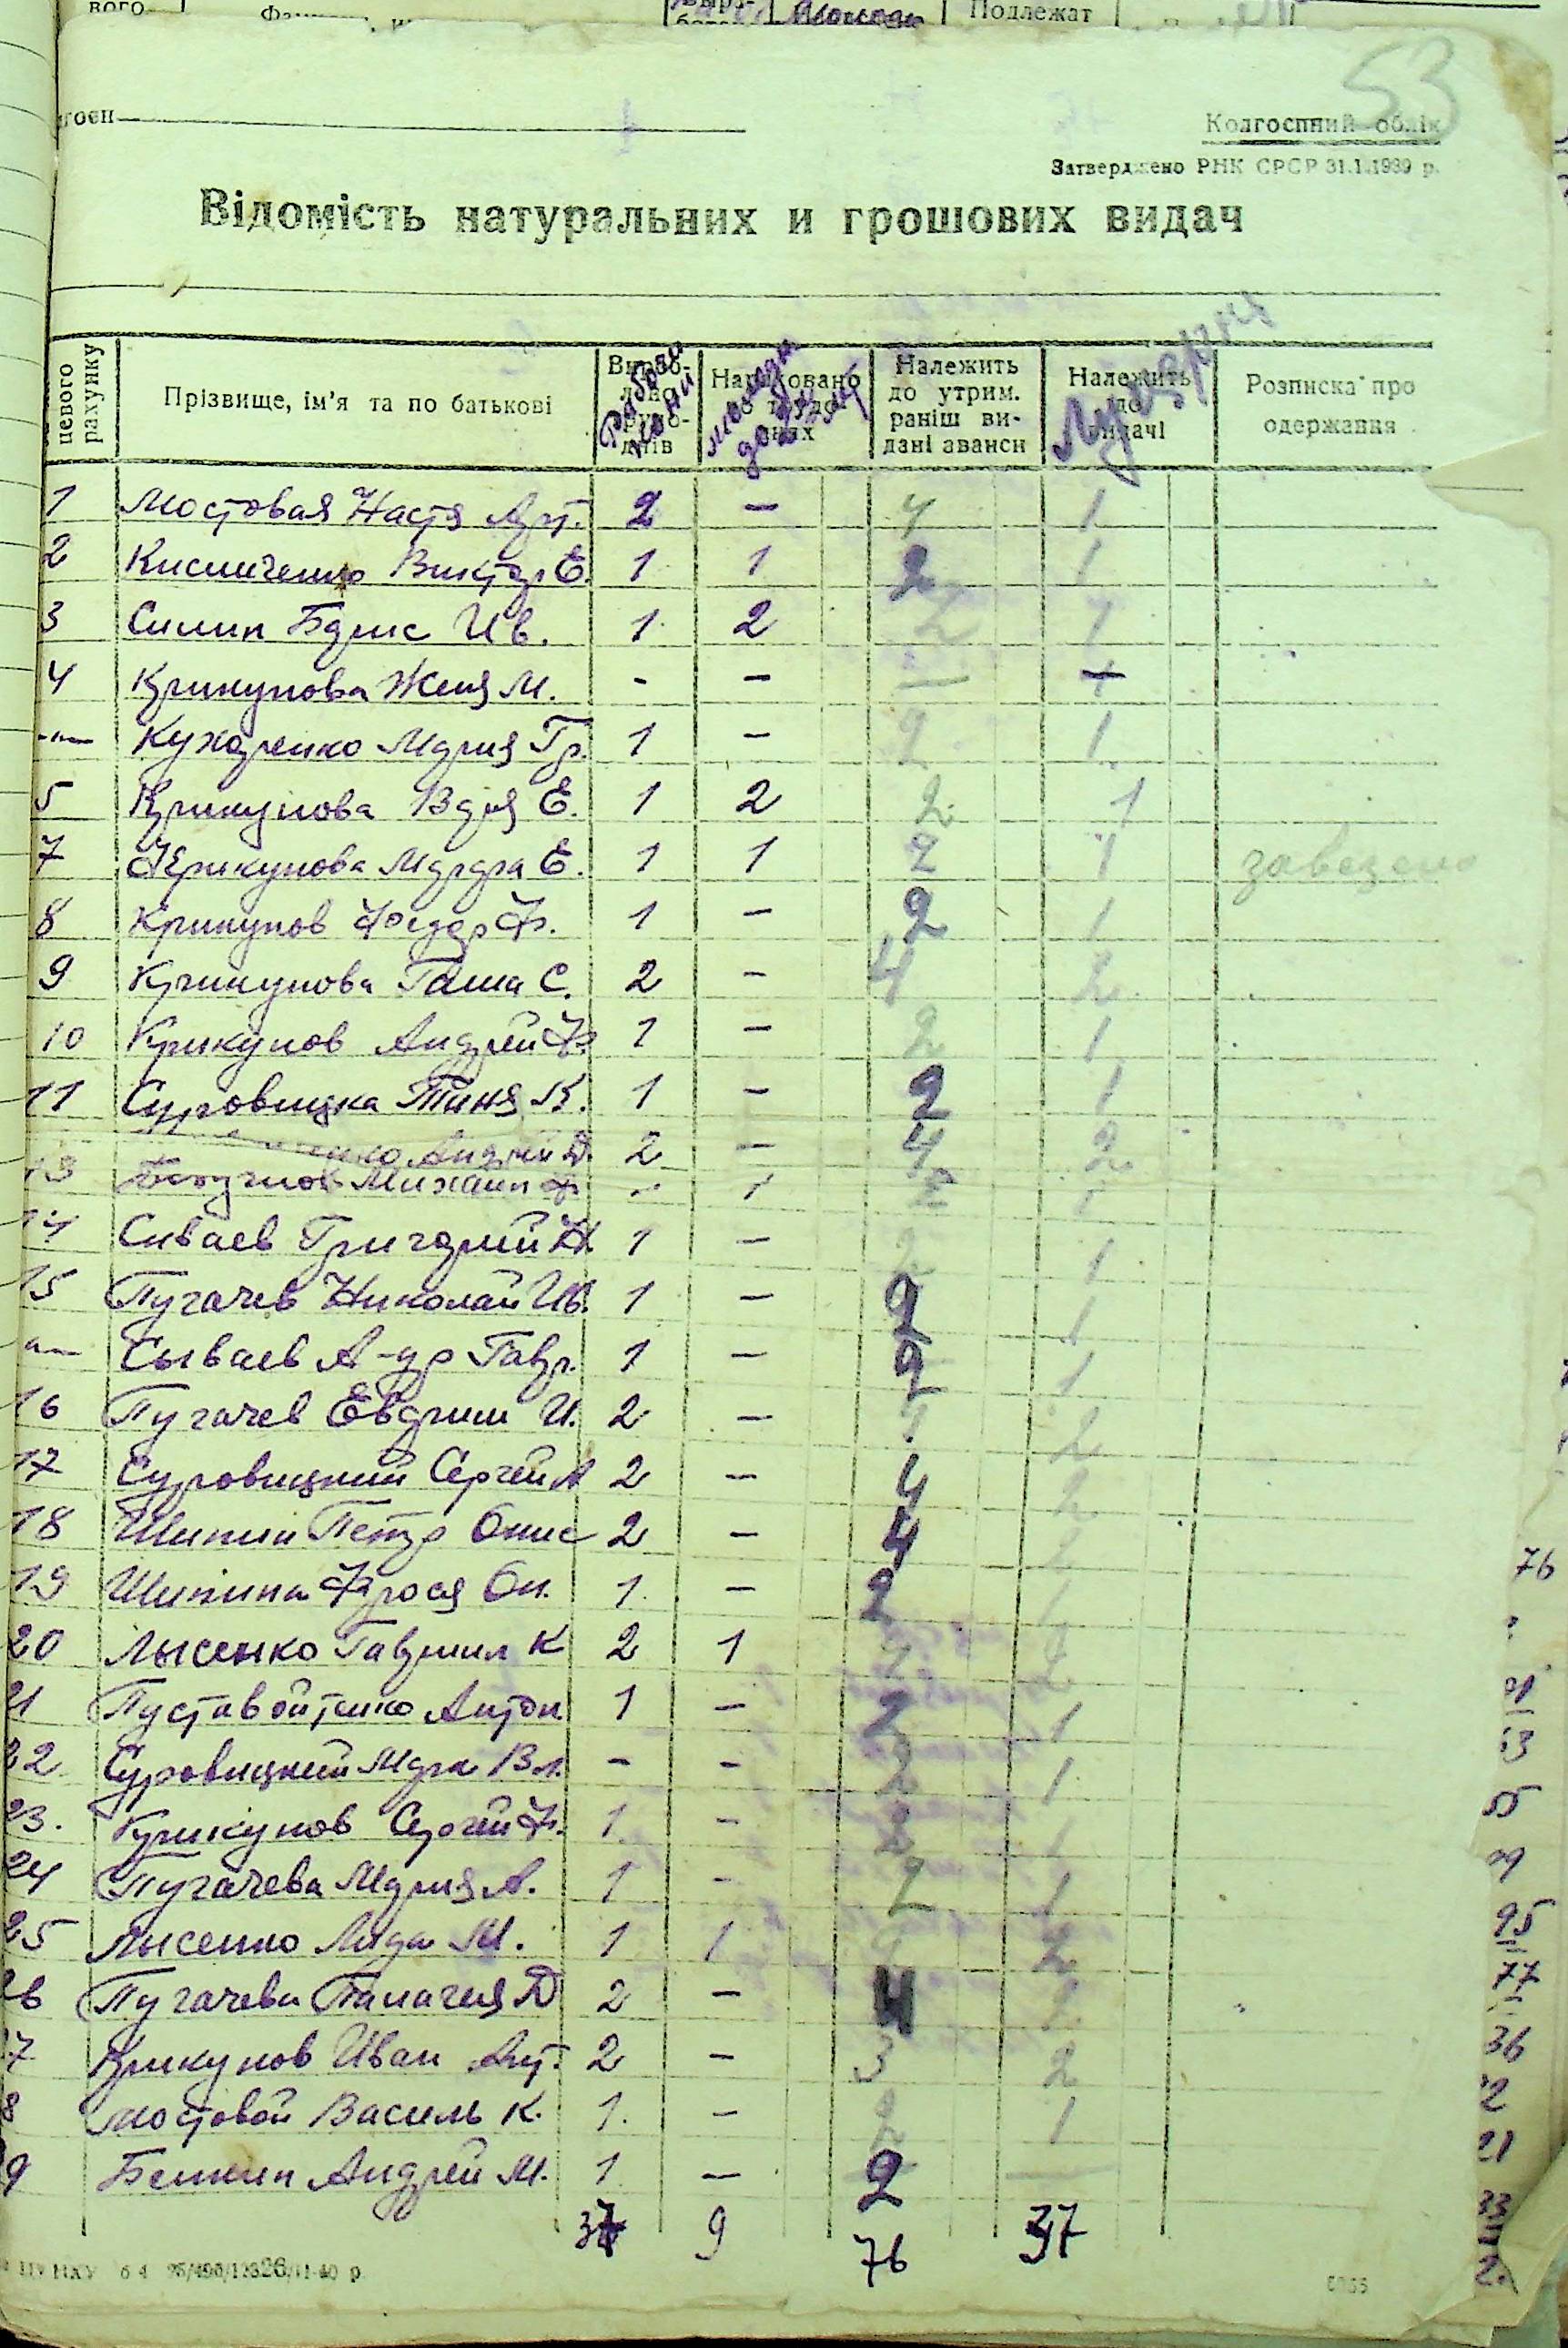 вого
Подлежат
53
гоєн
Колгоспний облік
Затверджено РНК СРСР 31.I.1939 р.
Відомість натуральних и грошових видач
певого рахунку
Прізвище, ім'я та по батькові
Вироблено трудо-днів
Нараховано по трудо-днях
Належить до утрим. раніш ви-дані аванси
Належить до видачі
Розписка про одержання
Рабочи кони
молодн
1 Мостовая Настя Арт. 2 — 4 1
2 Кисличенко Виктор Е. 1 1 2 1
3 Силин Борис Ив. 1 2 2 1
4 Крикунова Женя М. - — —
-"- Кухаренко Мария Гр. 1 — 2 1
5 Крикунова Варя Е. 1 2 2 1
7 Крикунова Марфа Е. 1 1 2 1 завезено
8 Крикунов Федор Ф. 1 — 2 1
9 Крикунова Гаша С. 2 — 4 2
10 Крикунов Андрей Ф. 1 — 2 1
11 Суровицка Таня К. 1 — 2 1
Андрей Д. 2 — 4 2
13 Михаил Ф. 1
14 Сиваев Григорий Н. 1 — 2 1
15 Пугачев Николай Ив. 1 — 2 1
-"- Сываев А-др Гавр. 1 — 2 1
16 Пугачев Евдоким И. 2 — 2
17 Суровицкий Сергей А 2 — 4 2
18 Шипин Петр Онис 2 — 4 2
19 Шипина Фрося Он. 1. — 2 1
20 Лысенко Гаврил К 2 1
21 Пустовойтенко Антон 1 — 2 1
22 Суровицкий Марк Вл. - - 2 1
23. Крикунов Сергей Ф. 1. - 2 1
24 Пугачева Мария А. 1 - 2 1
25 Лысенко Лида М. 1 1 2
26 Пугачева Палагея Д 2 — 4 2
7 Крикунов Иван Арт. 2 — 3 2
8 Мостовой Василь К. 1. — 2 1
9 Белкин Андрей М. 1 — 2
37 9 76 37
76
63
55
95
77
36
21
33